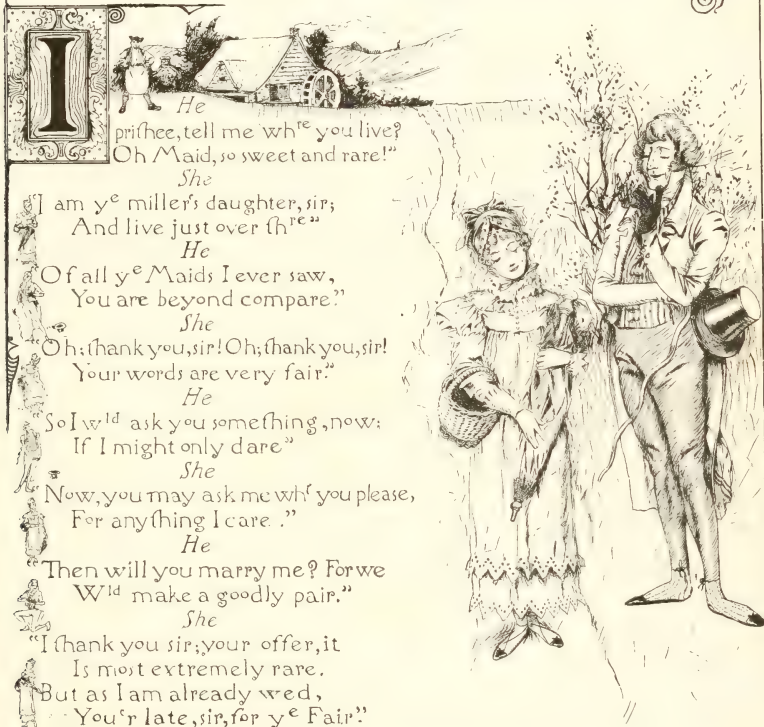 I
He
prithee, tell me whre you live?
Oh Maid, so sweet and rare!"
She
"I am ye miller's daughter, sir;
And live just over thre"
He
"Of all ye Maids I ever saw,
You are beyond compare."
She
Oh; thank you, sir! Oh; thank you, sir!
Your words are very fair."
He
So I wld ask you something, now;
If I might only dare"
She
Now, you may ask me wht you please,
For anything I care."
He
"Then will you marry me? For we
Wld make a goodly pair."
She
"I thank you sir; your offer, it
Is most extremely rare.
But as I am already wed,
You'r late, sir, for ye Fair."